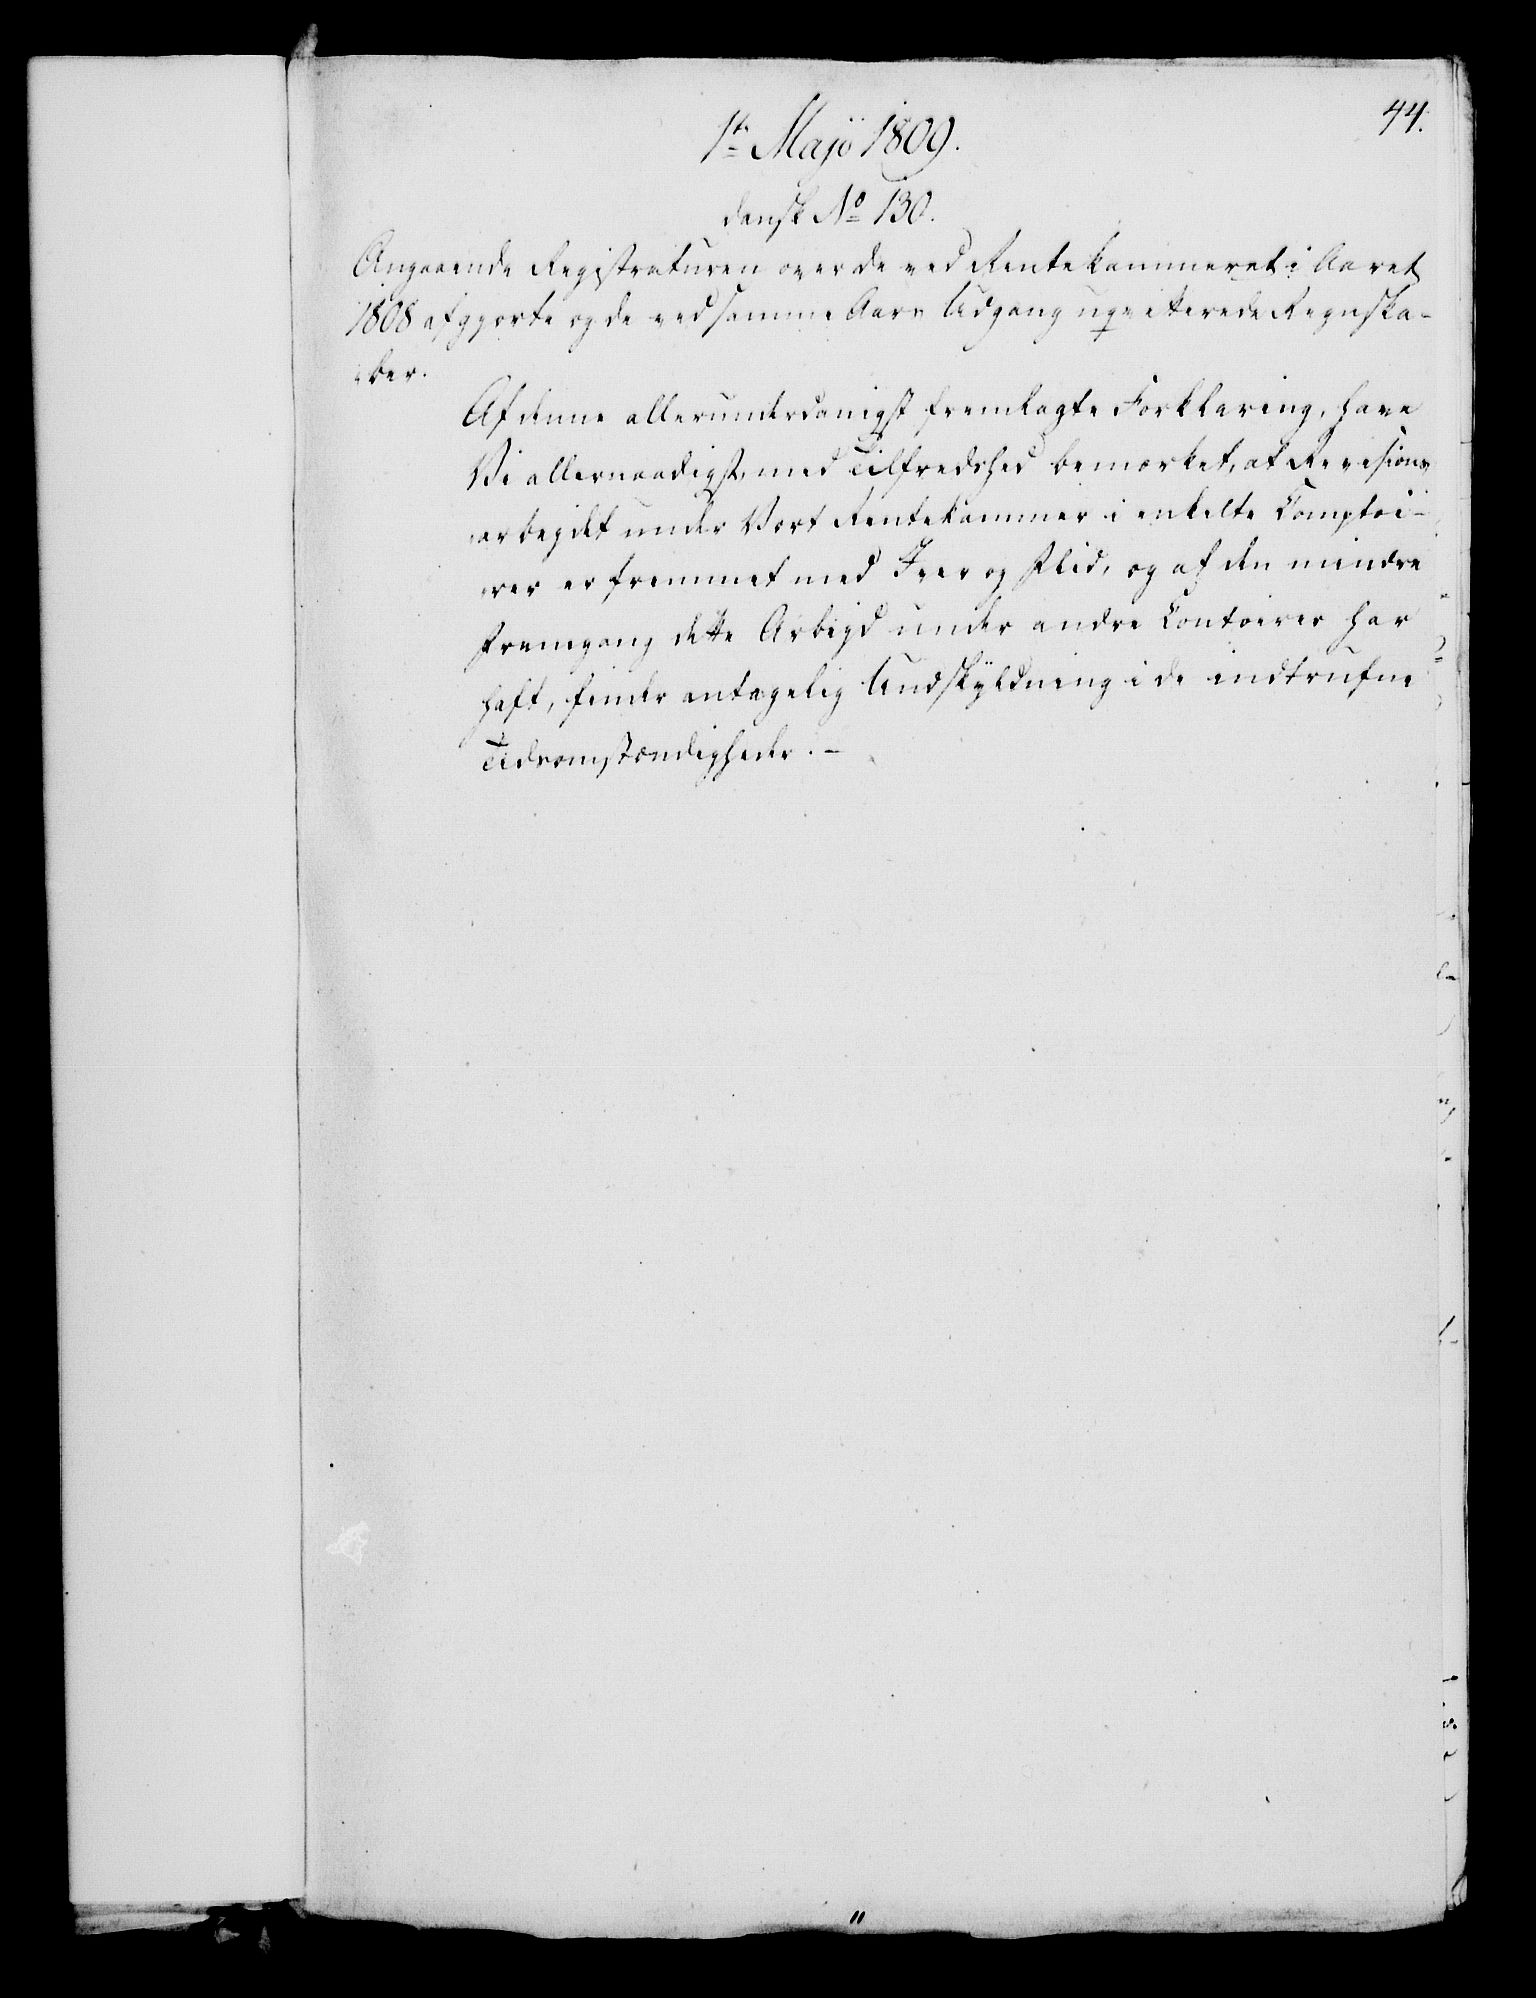 44.
1te Majo 1809.
dansk No 130.
Angaaende Registraturen over de ved Rentekammeret i Aaret
1808 afgjorte og de ved samme Aars Udgang uqvitterede Regnska-
ber.
Af denne allerunderdanigst fremlagte Forklaring, have
Vi allernaadigst, med Tilfredshed bemærket, at Revisions
arbejdet under Vort Rentekammer i enkelte Comptoi-
rer er fremmet med Iver og Flid, og af den mindre
Fremgang dette Arbejd under andre Contoirer har
haft, finder antagelig Undskyldning i de indtrufne
Tidsomstændigheder. -